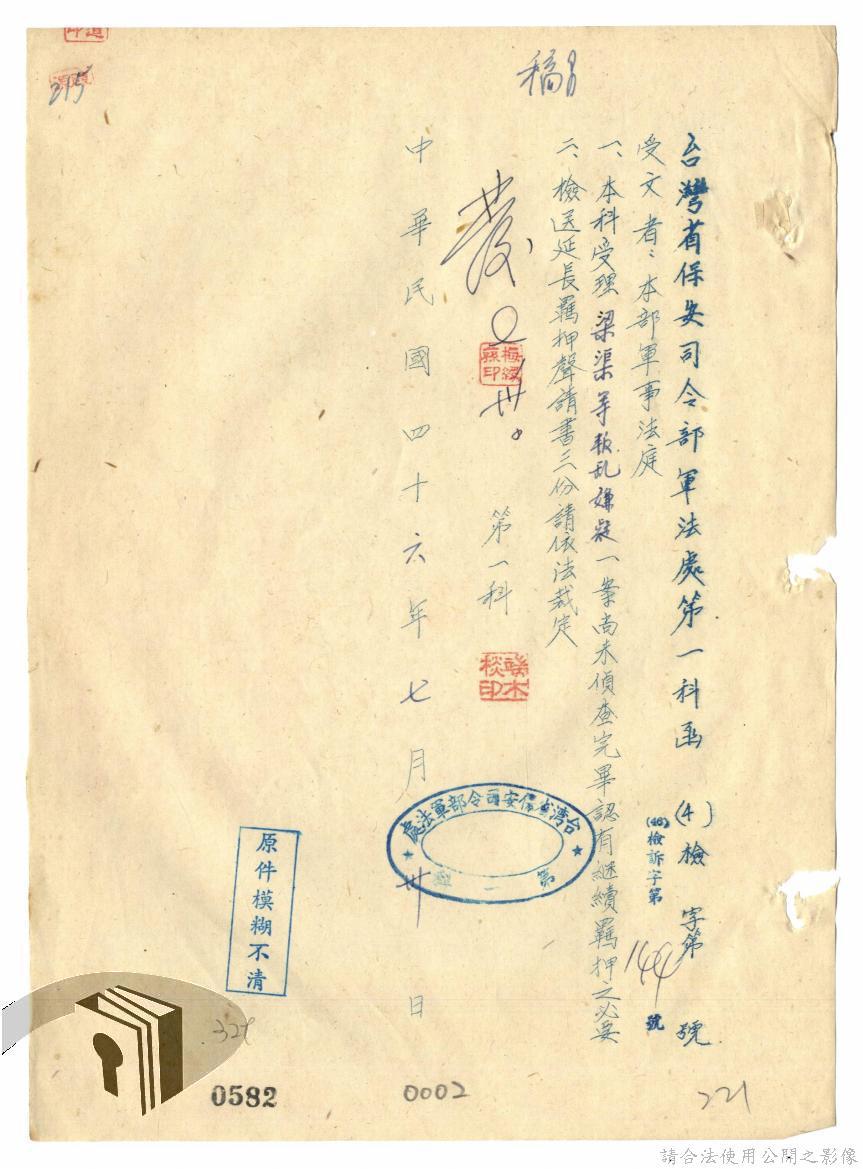 稿
台灣省保安司令部軍法處第一科函 (4)檢 字第 號
(46)檢訴字第 144 號
受文者：本部軍事法庭
一、本科受理梁渠等叛乱嫌疑一案尚未偵查完畢認有継續羈押之必要
二、檢送延長羈押聲請書三份請依法裁定
發
卅
第一科
中華民國四十六年七月卅日
台湾省保安司令部軍法處
第一
原件模糊不清
215
324
0582
0002
221
請合法使用公開之影像